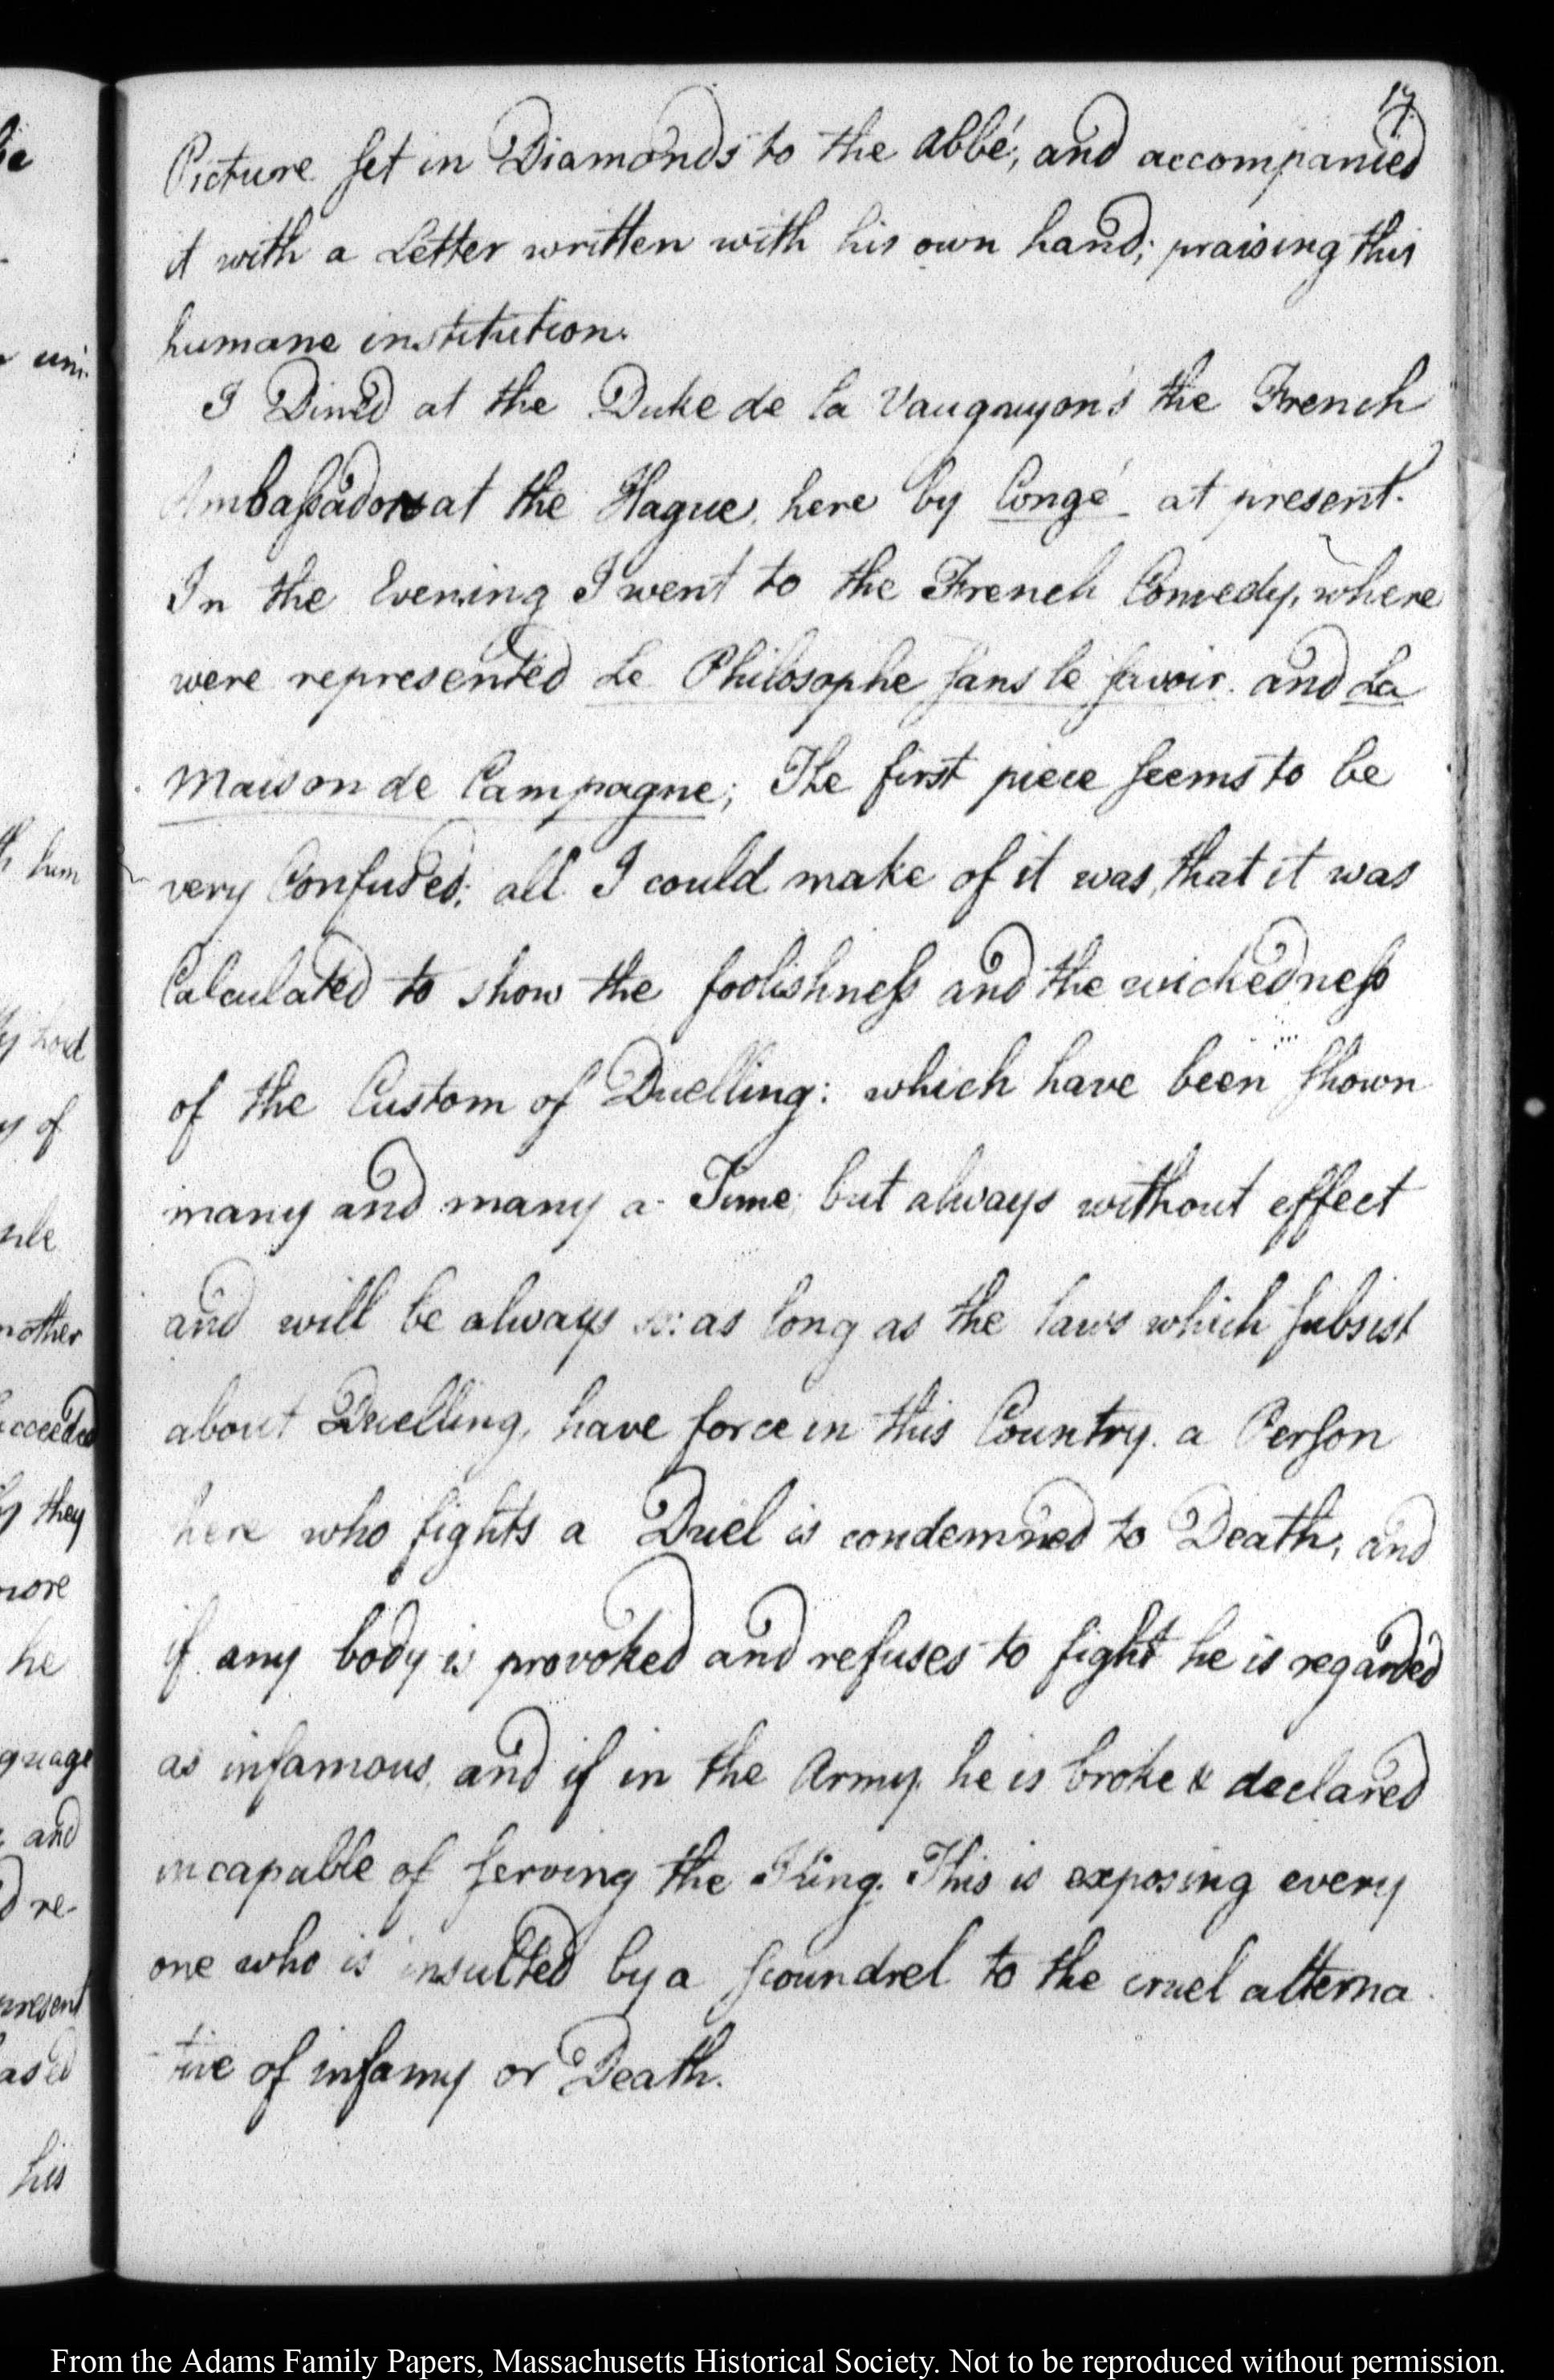 17
Picture set in Diamonds to the abbé, and accompanied
it with a Letter written with his own hand; praising this
humane institution.
I Dined at the Duke de la Vauguyon's the French
Ambassador at the Hague, here by Congé at present.
In the Evening I went to the French Comedy, where
were represented Le Philosophe sans le savoir. and La
Maison de Campagne; The first piece seems to be
very Confused; all I could make of it was, that it was
Calculated to show the foolishness and the wickedness
of the Custom of Duelling: which have been shown
many and many a Time but always without effect
and will be always so: as long as the laws which subsist
about Duelling, have force in this Country. a Person
here who fights a Duel is condemned to Death, and
if any body is provoked and refuses to fight he is regarded
as infamous, and if in the Army he is broke & declared
incapable of serving the King. This is exposing every
one who is insulted by a scoundrel to the cruel alterna
-tive of infamy or Death.
uni-
hum
of
mother
they
more
he
and
re-
present
his
From the Adams Family Papers, Massachusetts Historical Society. Not to be reproduced without permission.